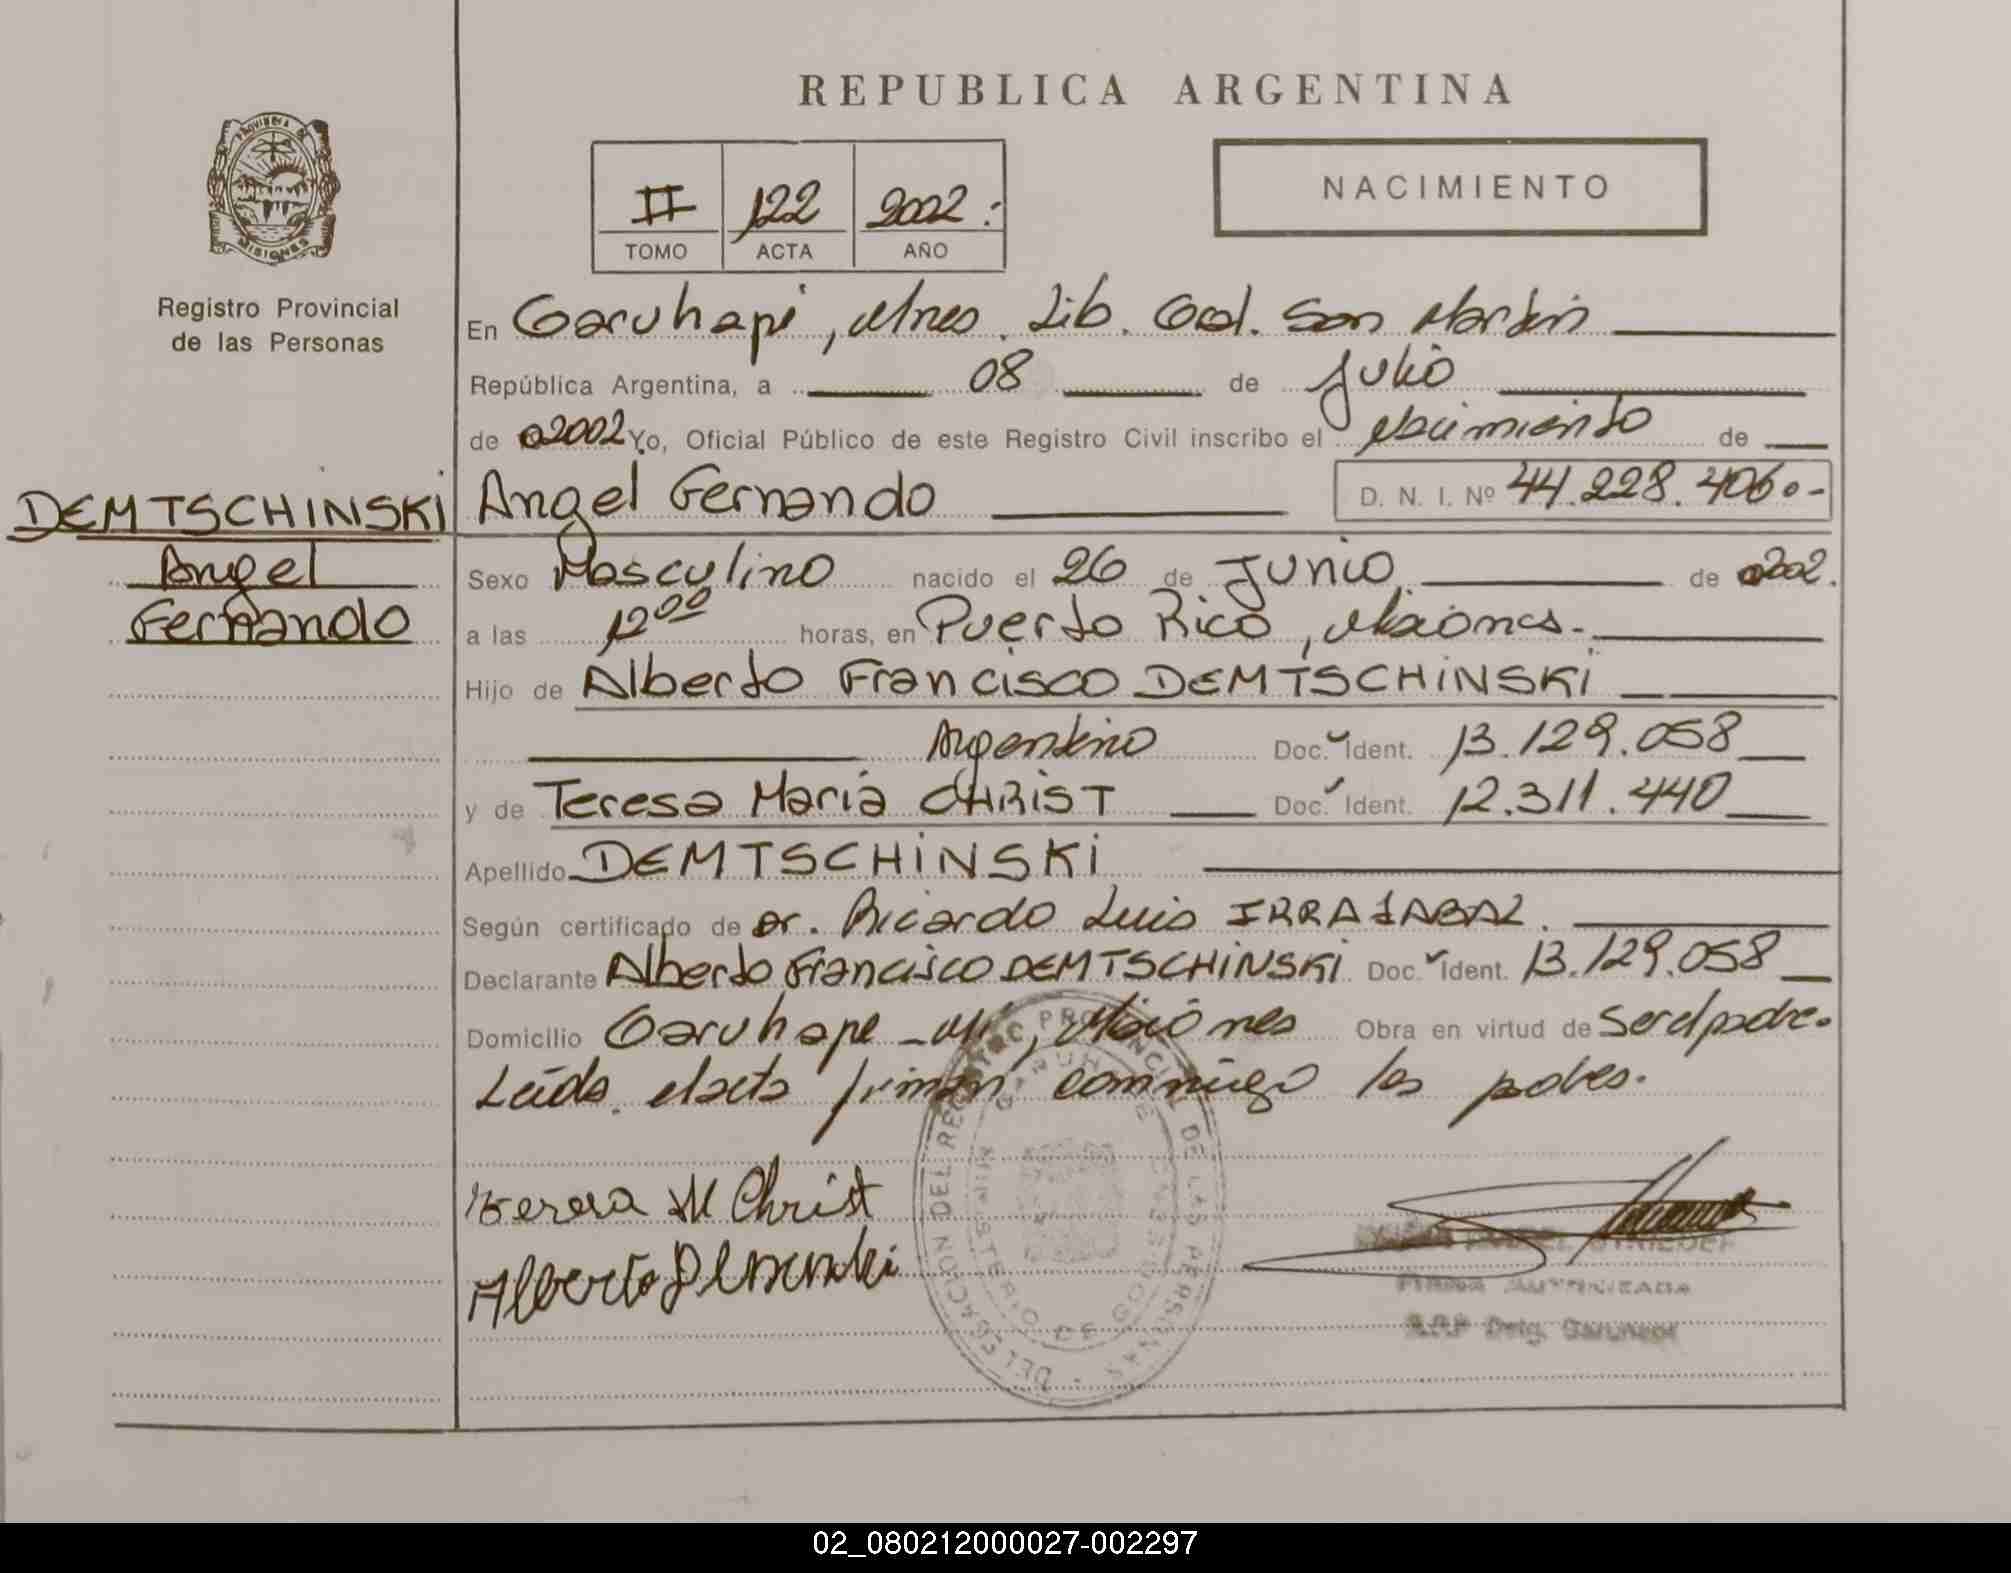 REPUBLICA ARGENTINA
PROVINCIA DE
MISIONES
Registro Provincial
de las Personas
II 122 2002.-
TOMO ACTA AÑO
NACIMIENTO
En Garuhapé, Mnes. Lib. Gral. San Martín
República Argentina, a 08 de Julio
de 2002 Yo, Oficial Público de este Registro Civil inscribo el Nacimiento de
DEMTSCHINSKI Angel Fernando D. N. I. Nº 44.228.406.-
Angel
Fernando
Sexo Masculino nacido el 26 de Junio de 2002.
a las 12⁰⁰ horas, en Puerto Rico, Misiones.-
Hijo de Alberto Francisco DEMTSCHINSKI
Argentino Doc. Ident. 13.129.058
y de Teresa Maria CHRIST Doc. Ident. 12.311.440
Apellido DEMTSCHINSKI
Según certificado de Dr. Ricardo Luis IRRAZABAL.
Declarante Alberto Francisco DEMTSCHINSKI Doc. Ident. 13.129.058
Domicilio Garuhape - Mí, Misiones Obra en virtud de Ser el padre.
Leída el acta firman conmigo los padres.
Teresa M Christ
Alberto
DELEGACION DEL REGISTRO PROVINCIAL DE LAS PERSONAS
GARUHAPE
MINISTERIO DE GOB
FIRMA AUTORIZADA
R.P.P Deleg. Garuhape
02_080212000027-002297